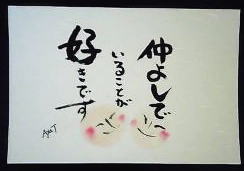 仲よしでっ
いることが
好きです